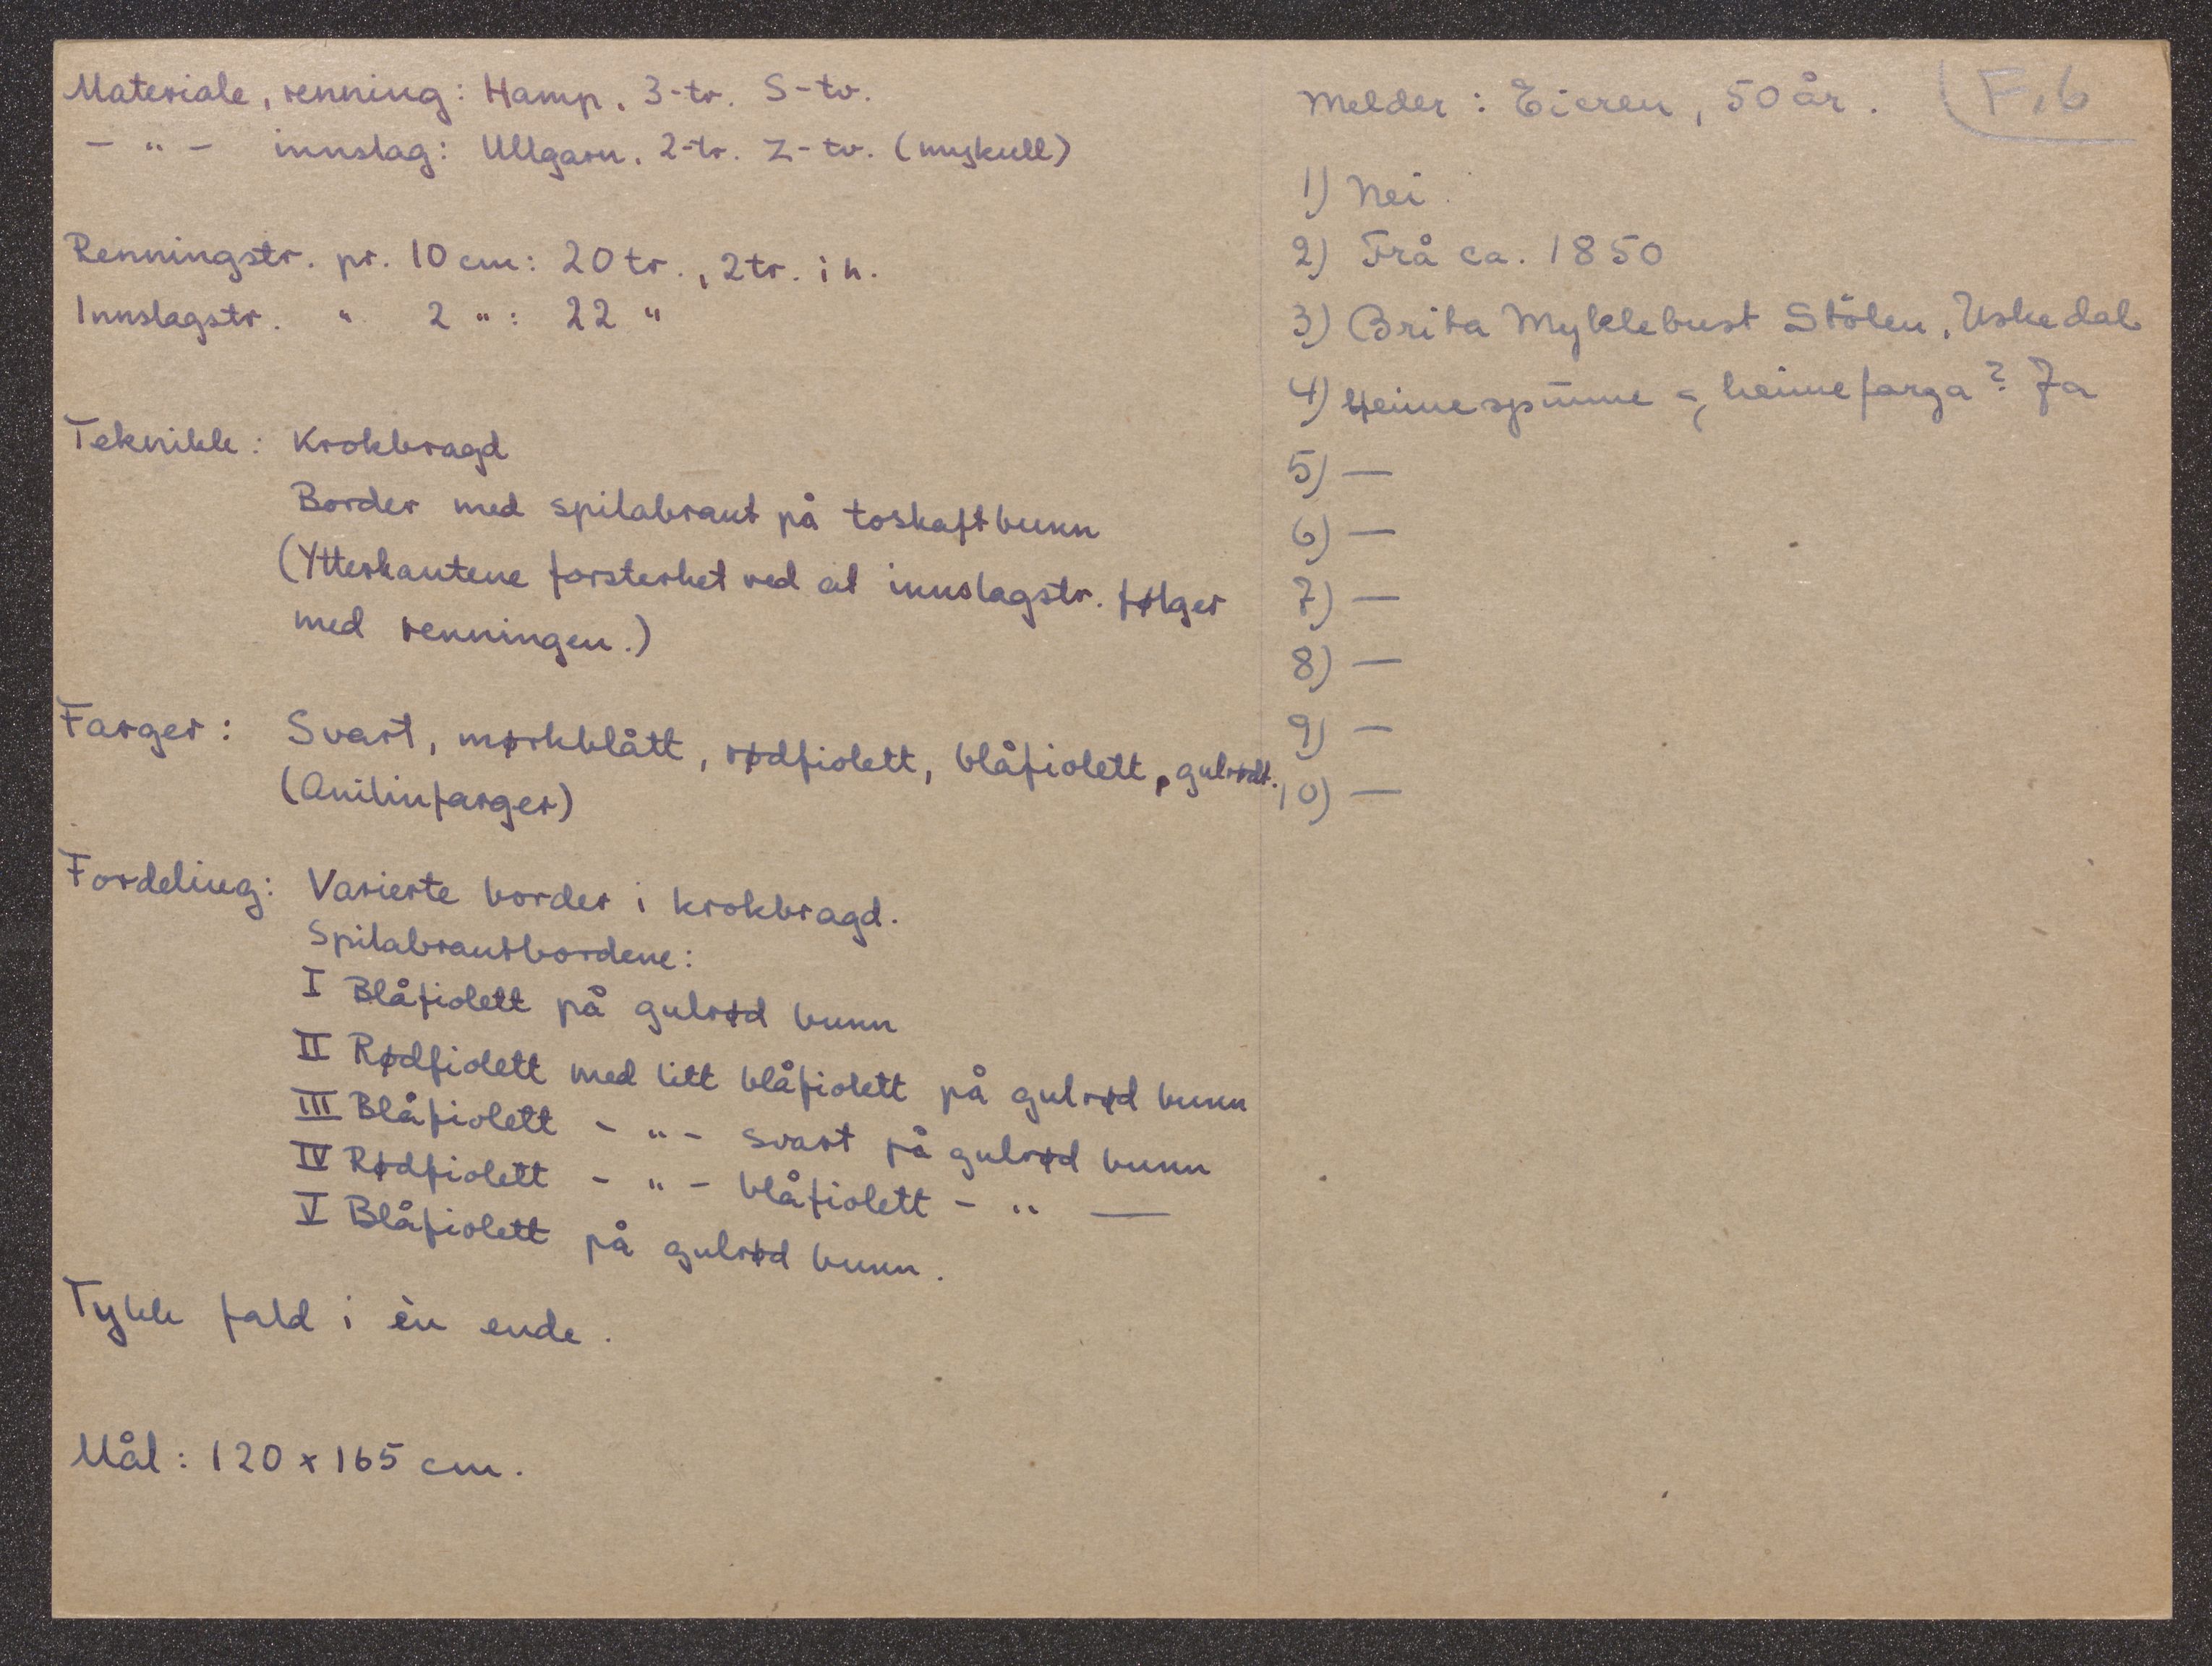 Materiale, renning: Hamp. 3-tr. S-tv.
- " - innslag: Ullgarn. 2-tr. Z-tv. (mykull)
Renningstr. pr. 10 cm: 20 tr., 2 tr. i h.
Innslagstr. " 2 " : 22 "
Teknikk: Krokbragd
Border med spilabraut på toskaftbunn
(Ytterkantene forsterket ved at innslagstr. følger
med renningen.)
Farger: Svart, mørkblått, rødfiolett, blåfiolett, gulrødt.
(Anilinfarger)
Fordeling: Varierte border i krokbragd.
Spilabrautbordene:
I Blåfiolett på gulrød bunn
II Rødfiolett med litt blåfiolett på gulrød bunn
III Blåfiolett - " - svart på gulrød bunn
IV Rødfiolett - " - blåfiolett - " —
V Blåfiolett på gulrød bunn.
Tykk fald i èn ende.
Mål: 120 x 165 cm.
F. 6
Melder: Eieren, 50 år.
1) Nei.
2) Frå ca. 1850
3) Brita Myklebust Stölen, Uskedal
4) Heimespunne og heimefarga? Ja
5) —
6) —
7) —
8) —
9) —
10) —